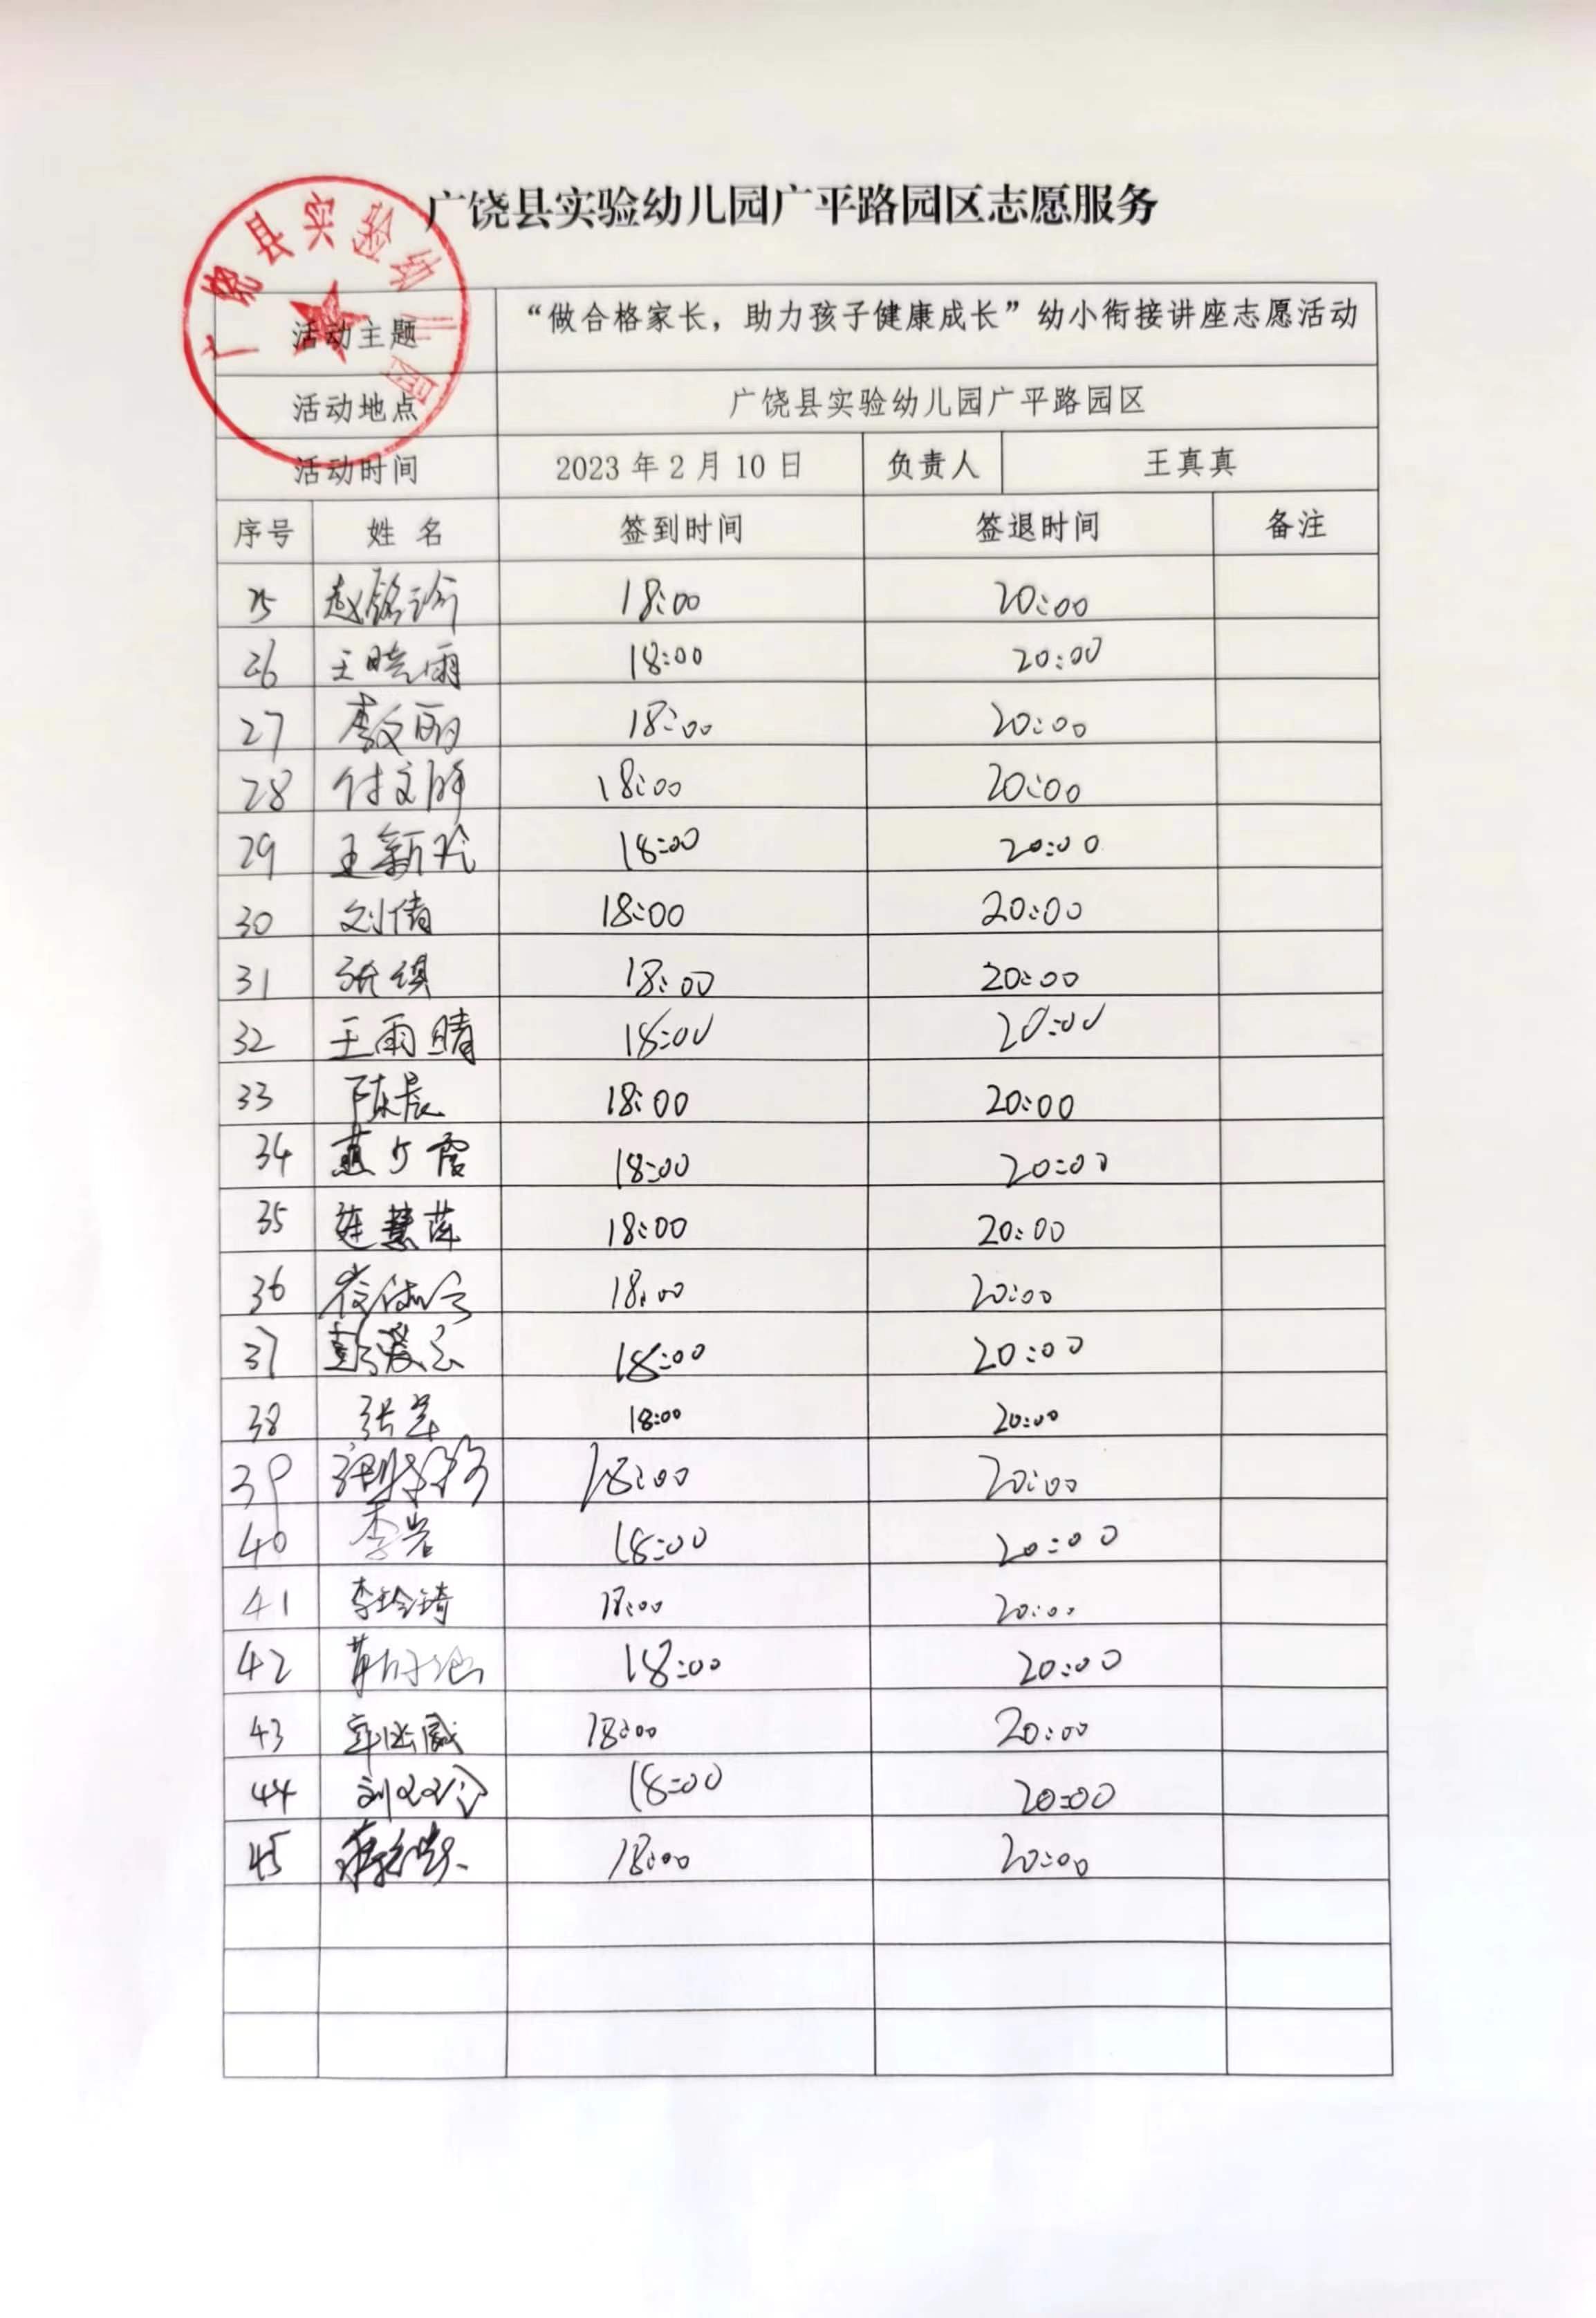 广饶县实验幼儿园广平路园区志愿服务
广饶县实验幼儿园
活动主题 “做合格家长，助力孩子健康成长”幼小衔接讲座志愿活动
活动地点 广饶县实验幼儿园广平路园区
活动时间 2023年2月10日 负责人 王真真
序号 姓名 签到时间 签退时间 备注
25 赵铭 18:00 20:00
26 王晓雨 18:00 20:00
27 李文丽 18:00 20:00
28 付文 18:00 20:00
29 王新玲 18:00 20:00
30 刘倩 18:00 20:00
31 张缜 18:00 20:00
32 王雨晴 18:00 20:00
33 陈晨 18:00 20:00
34 燕少霞 18:00 20:00
35 延慧萍 18:00 20:00
36 18:00 20:00
37 彭爱云 18:00 20:00
38 张 18:00 20:00
39 18:00 20:00
40 李岩 18:00 20:00
41 李玲琦 18:00 20:00
42 18:00 20:00
43 18:00 20:00
44 刘 18:00 20:00
45 18:00 20:00